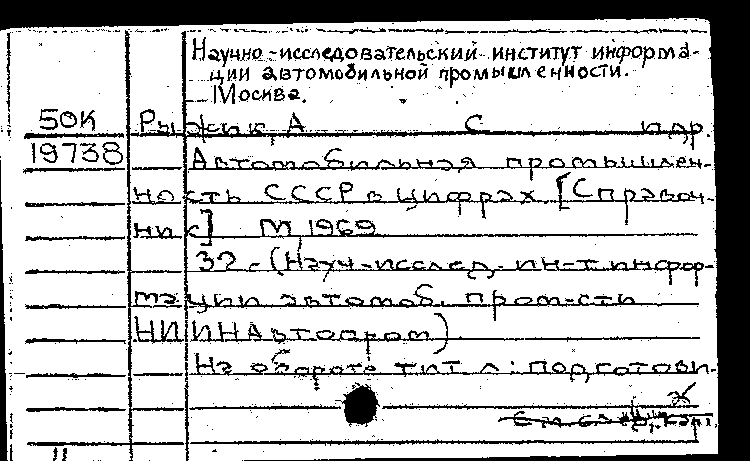 Научно-исследовательский институт информа-
ции автомобильной промышленности.
Москва.
50К Рыжик, А С и др.
19738 Автомобильная промышлен-
ность СССР в цифрах [Справоч-
ник] М, 1969
32 - (Науч-исслед. ин-т инфор-
мации автомоб. пром-сти
НИИНАвтопром)
На обороте тит л: подготови-